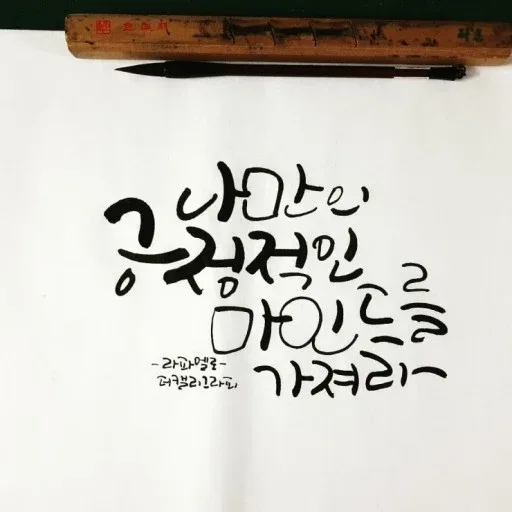 나만의
긍정적인
마인드를
가져라
-라파엘로-
퍼캘리그라피